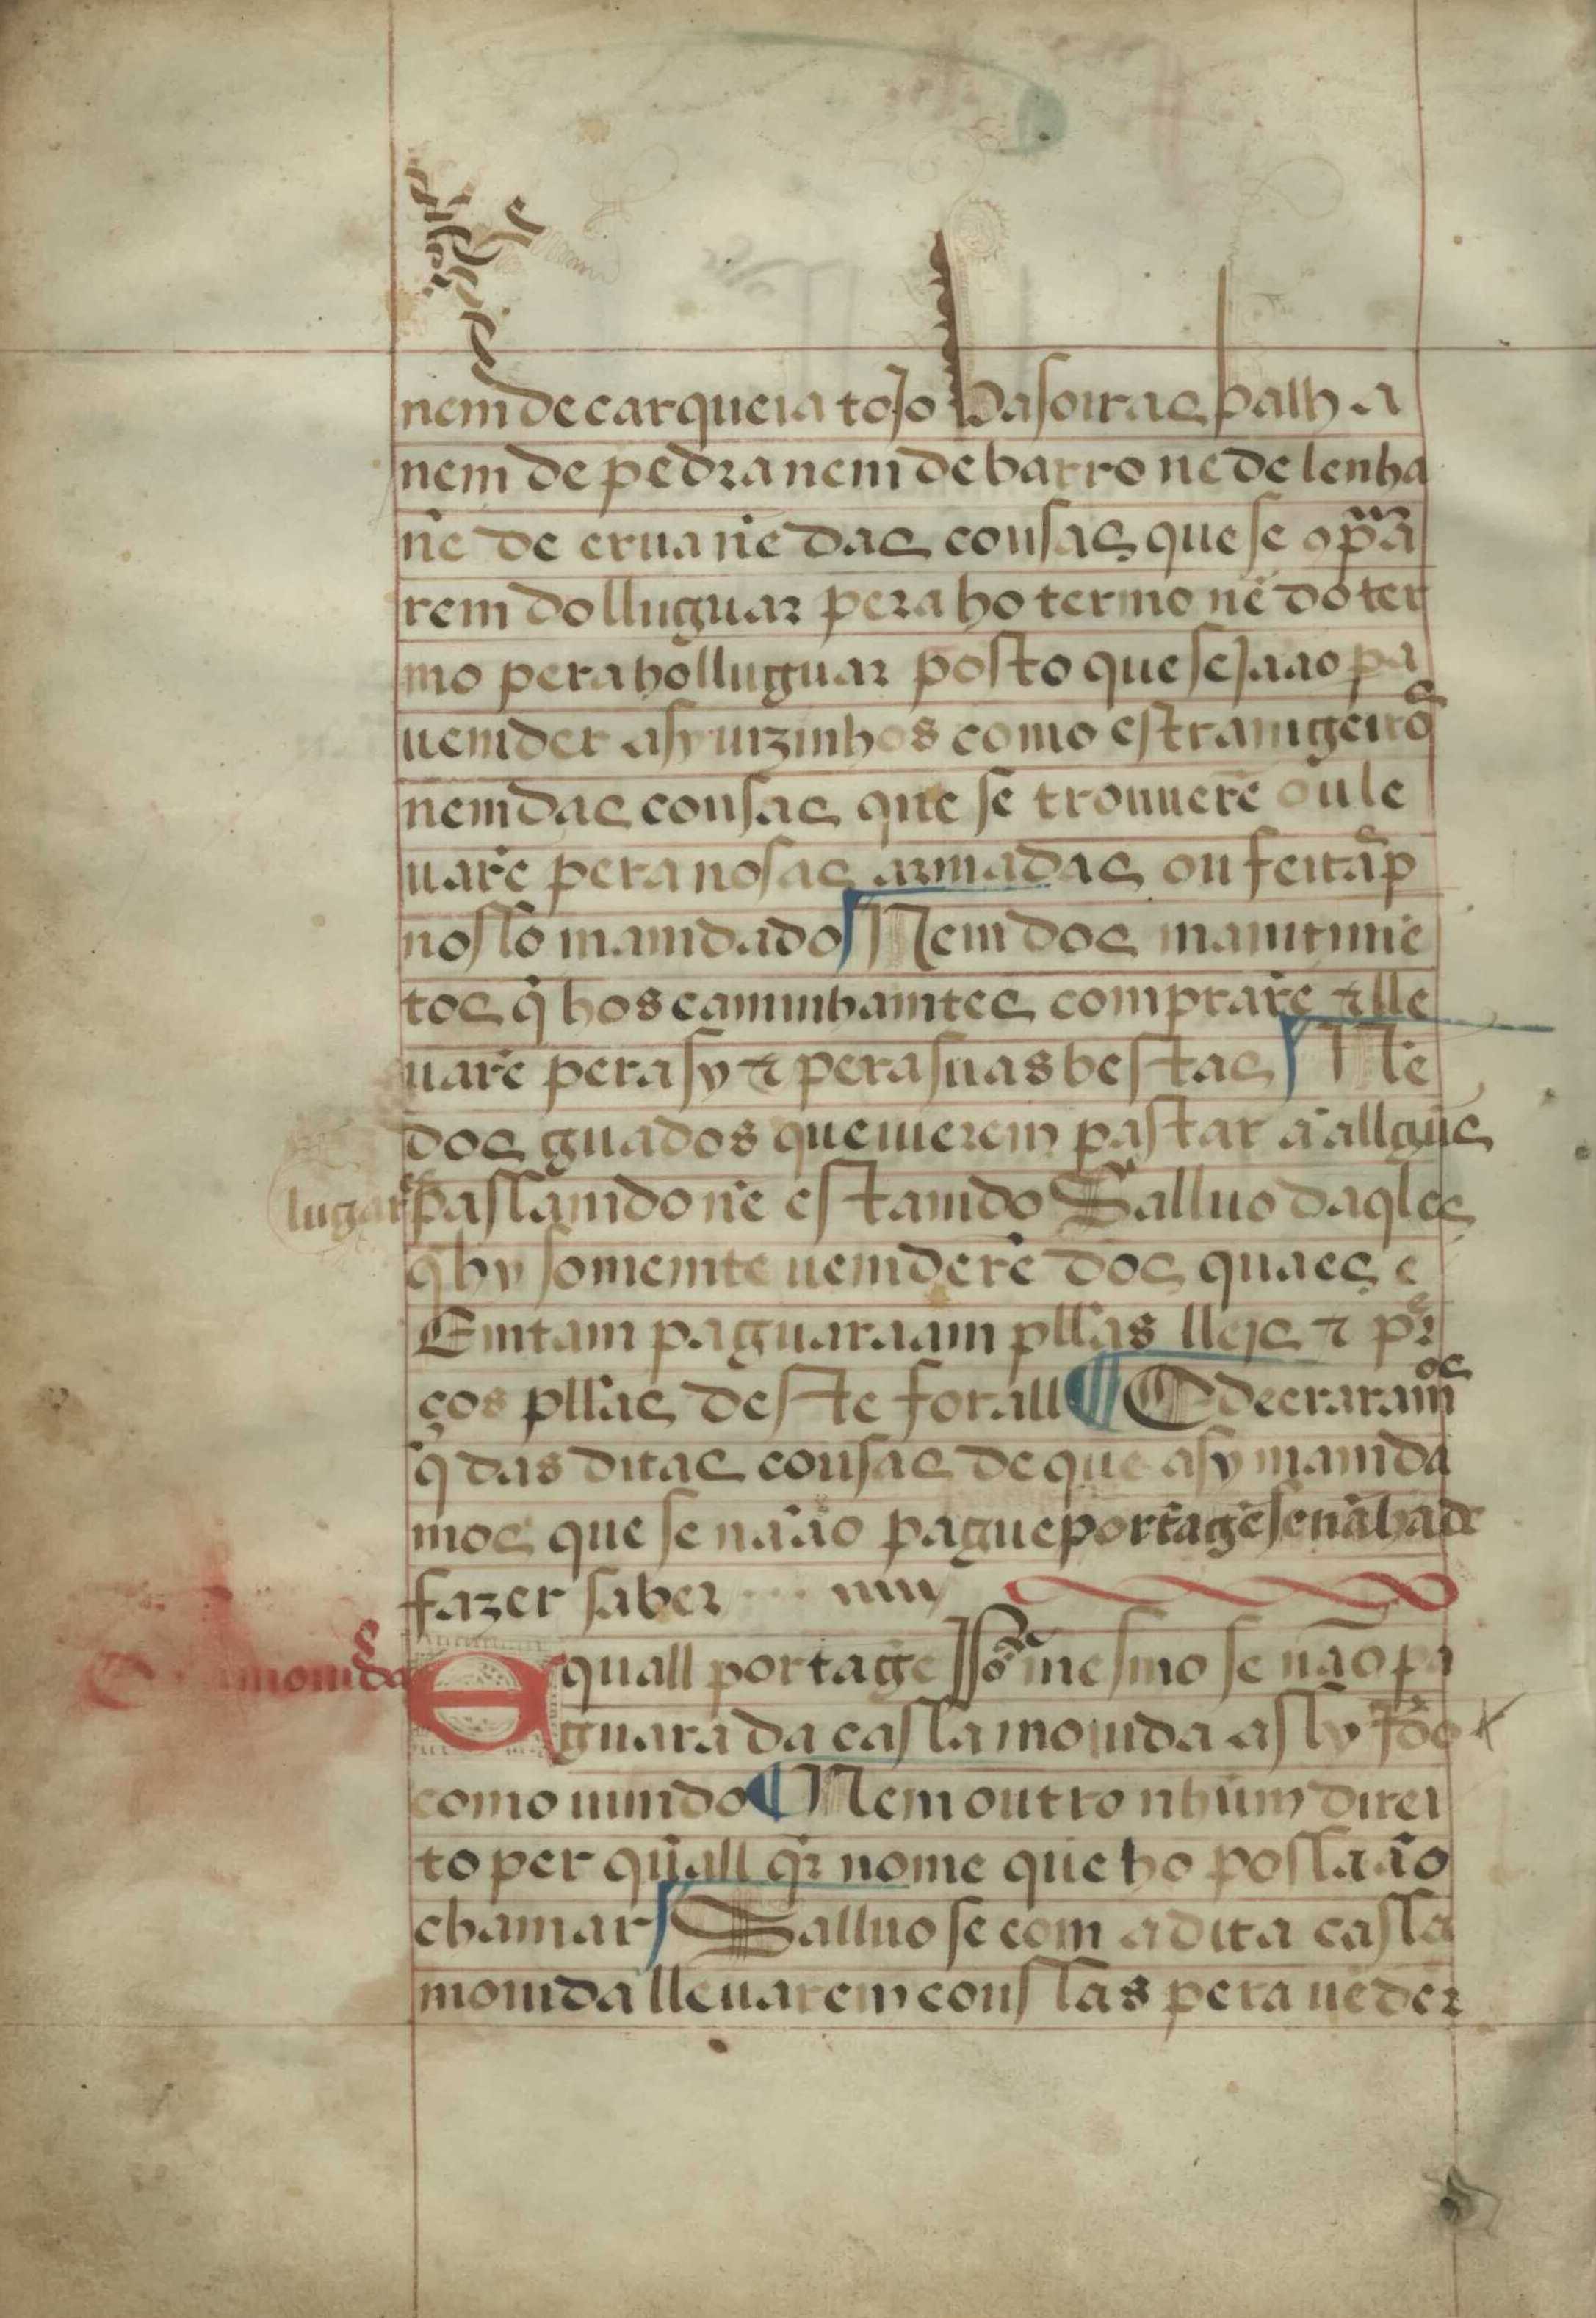 nem de carqueia tojo vasoiras palha
nem de pedra nem de barro nẽ de lenha
nẽ de erua nẽ das cousas que se ꝯprã
rem do lluguar pera ho termo nẽ do ter
mo pera ho lluguar posto que sejaao pa
uemder asy uizinhos como estramgeiros
nem das cousas que se trouuerẽ ou le
uarẽ pera nosas armadas ou feitas p
nosso mamdado Nem dos mamtimẽ
tos q̃ hos caminhamtes comprarẽ ⁊ lle
uarẽ pera sy ⁊ pera suas bestas Nẽ
dos guados que uierem pastar a allgũs
lugares passamdo nẽ estamdo Salluo daqles
q̃ hy somemte uemderẽ dos quaes
Emtam paguaraam pllas lleis ⁊ pre
ços pllas deste forall E decraramos
q̃ das ditas cousas de que asy mamda
mos que se nãao pague portagẽ se nã ha de
fazer saber
Casa mouida
A quall portagẽ Jsso mesmo se não pa
guara da cassa mouida assy Jdo
como uimdo Nem outro nhũm direi
to per quall qr̃ nome que ho possaão
chamar Salluo se com a dita cassa
mouida lleuarem coussas pera uẽder